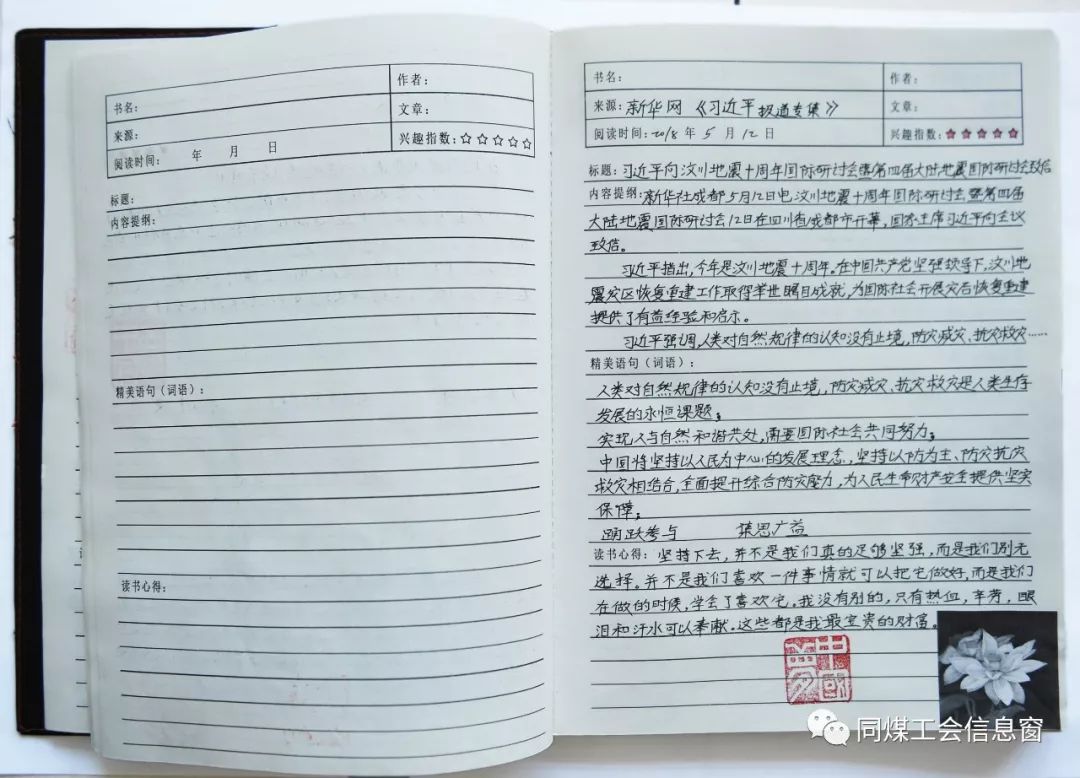 书名:
作者:
来源:
文章:
阅读时间: 年 月 日
兴趣指数:☆☆☆☆☆
标题:
内容提纲:
精美语句(词语):
读书心得:
书名:
作者:
来源:新华网《习近平报道专集》
文章:
阅读时间:2018年5月12日
兴趣指数:★★★★★
标题:习近平向汶川地震十周年国际研讨会暨第四届大陆地震国际研讨会致信
内容提纲:新华社成都5月12日电,汶川地震十周年国际研讨会暨第四届
大陆地震国际研讨会12日在四川省成都市开幕,国家主席习近平向会议
致信。
习近平指出,今年是汶川地震十周年。在中国共产党坚强领导下,汶川地
震灾区恢复重建工作取得举世瞩目成就,为国际社会开展灾后恢复重建
提供了有益经验和启示。
习近平强调,人类对自然规律的认知没有止境,防灾减灾、抗灾救灾……
精美语句(词语):
人类对自然规律的认知没有止境,防灾减灾、抗灾救灾是人类生存
发展的永恒课题;
实现人与自然和谐共处,需要国际社会共同努力;
中国将坚持以人民为中心的发展理念,坚持以防为主、防灾抗灾
救灾相结合,全面提升综合防灾能力,为人民生命财产安全提供坚实
保障;
踊跃参与 集思广益
读书心得:坚持下去,并不是我们真的足够坚强,而是我们别无
选择。并不是我们喜欢一件事情就可以把它做好,而是我们
在做的时候,学会了喜欢它。我没有别的,只有热血,辛劳,眼
泪和汗水可以奉献。这些都是我最宝贵的财富。
同煤工会信息窗